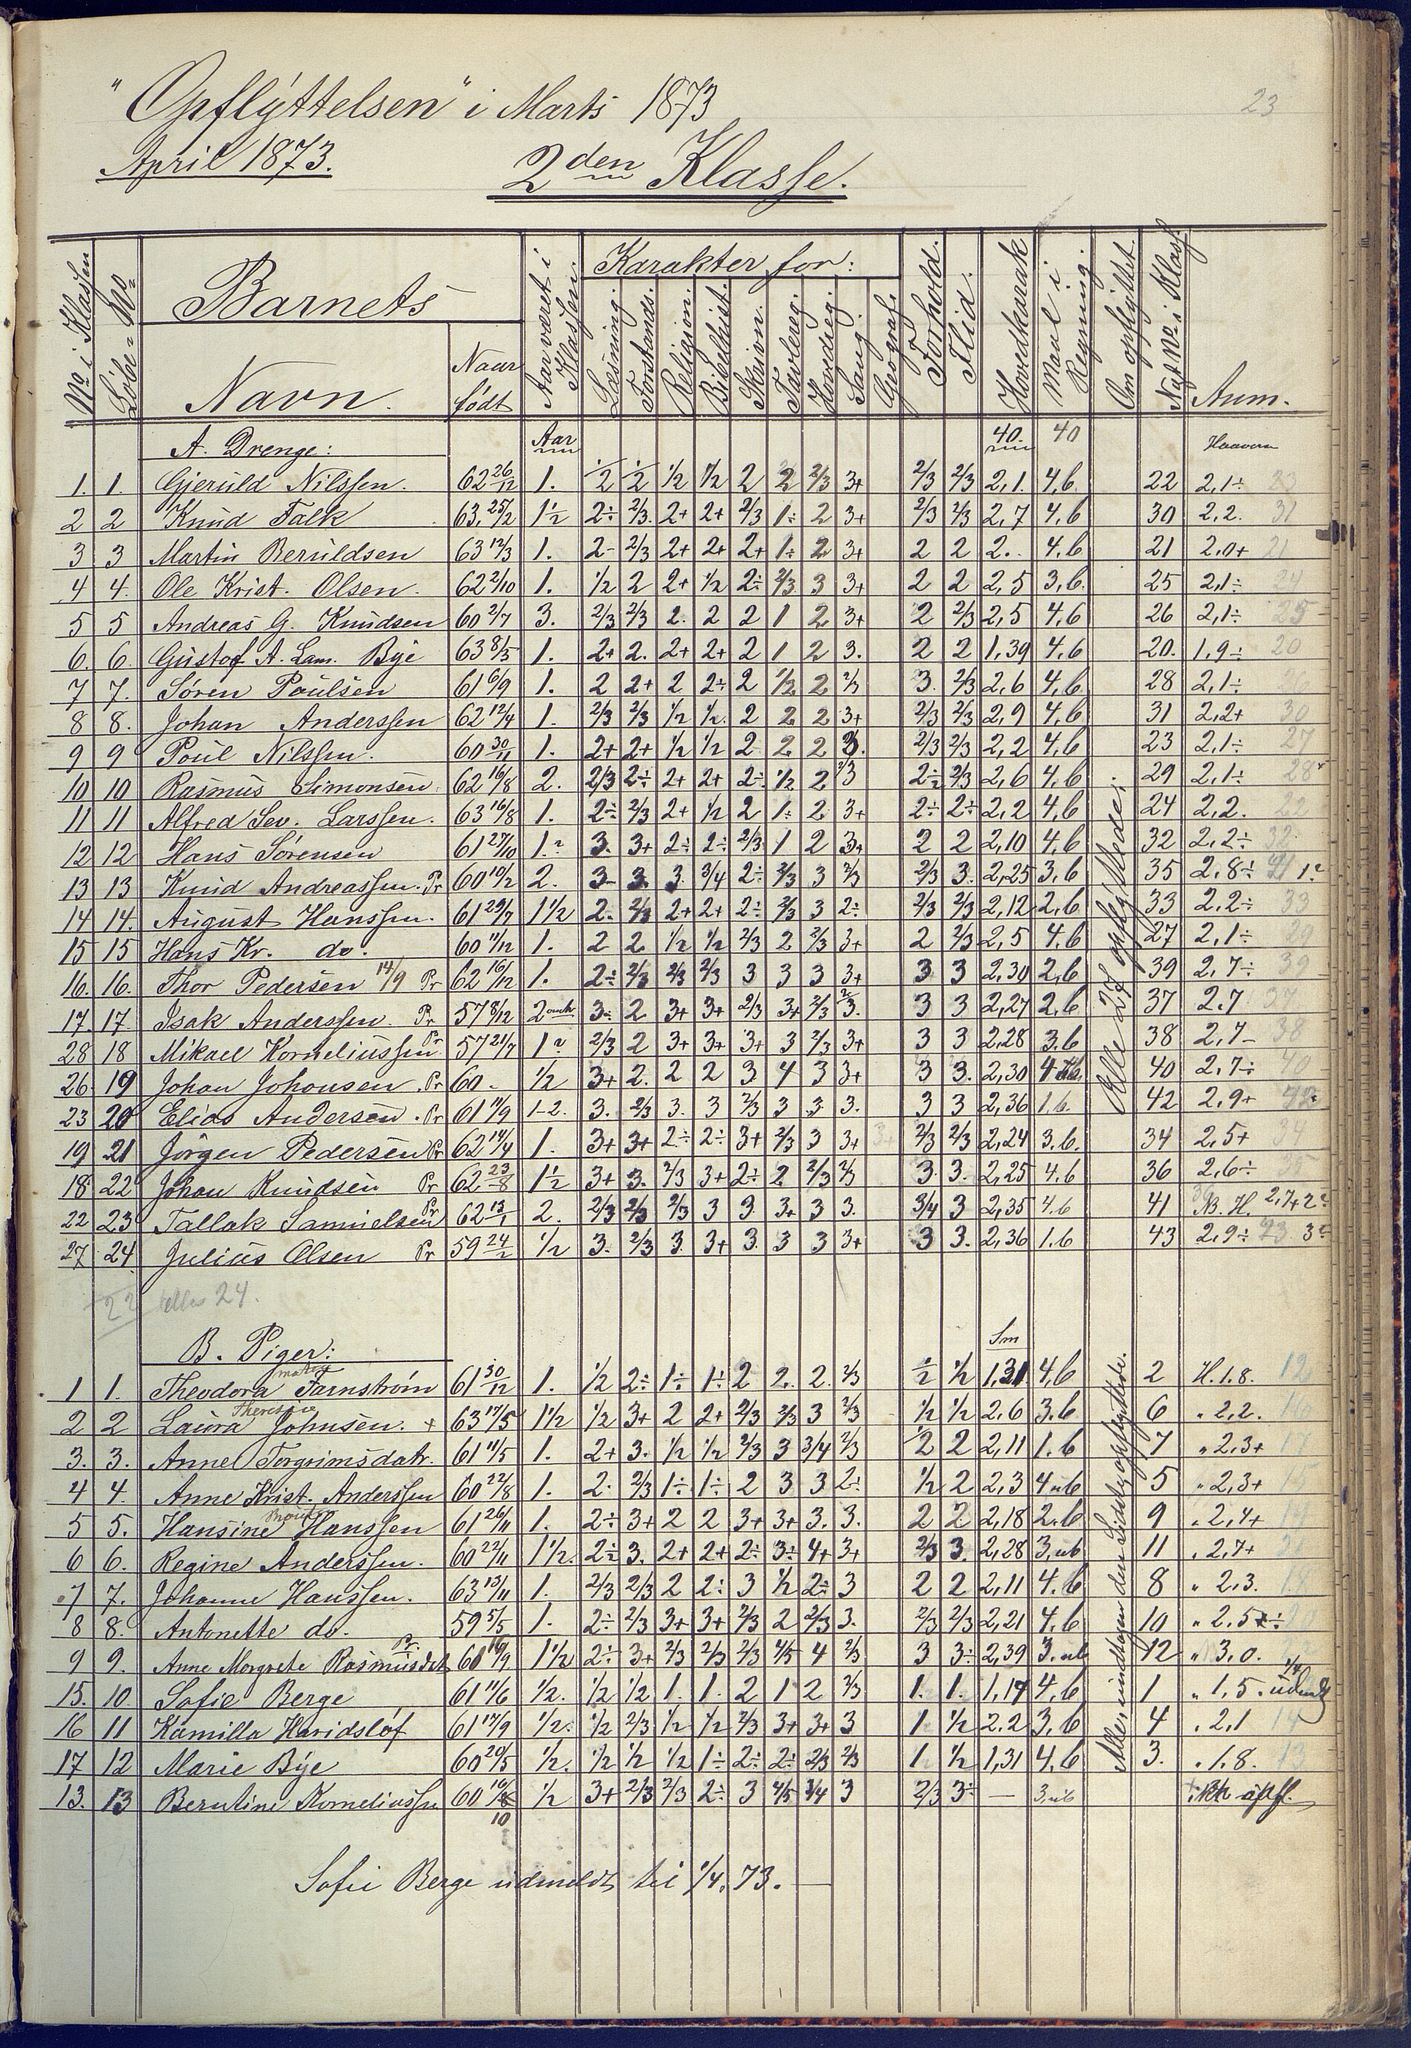 "Opflyttelsen" i Marts 1873
23
April 1873.
2den Klasse.
No i Klassen
Löbe-No
Barnets
Navn.
Naar født
Aar været i Klassen.
Karakter for:
Læsning.
Forstands.
Religion.
Bibelhist.
Skrivn.
Tavlereg.
Hovedreg.
Sang.
Geograf.
Forhold.
Flid.
Hovedkarak
Maal i Regning.
Om opflyttet.
Nyt No i Klass
Anm.
A. Drenge: Aar 40. 40
1. 1. Gjeruld Nilssen. 62 26/12 1. 1/2 1/2 1/2 1/2 2 2 2/3 3+ 2/3 2/3 2,1. 4,6. 22 2,1÷ 23
2 2 Knud Falk 63, 25/2 1 1/2 2÷ 2/3. 2+ 2+ 2/3 1÷ 2 3+ 2/3 2/3 2,7 4,6 30 2,2. 31
3 3 Martin Beruldsen 63 12/3 1. 2- 2/3 2+ 2+ 2+ 1÷ 2 3+ 2 2 2. 4,6 21 2,0+ 21
4 4. Ole Krist. Olsen. 62 2/10 1. 1/2 2 2+ 1/2 2÷ 2/3 3 3+ 2 2 2,5 3,6. 25 2,1÷ 24
5 5 Andreas G. Knudsen 60 2/7 3. 2/3 2/3 2. 2 2 1 2 3+ 2 2/3 2,5 4,6 26 2,1÷ 25
6. 6. Gustof A. Lam. Bye 63 8/5 1. 2+ 2. 2+ 2+ 2 1 2 3. 2 2 1,39 4,6 20. 1,9÷ 20
7 7. Søren Poulsen 61 6/9 1. 2 2+ 2 2÷ 2 1/2 2 2/3 3. 2/3 2,6 4,6. 28 2,1÷ 26
8 8. Johan Anderssen 62 12/4 1. 2/3 2/3 1/2 1/2. 2 2 2 3+ 2/3 2/3 2,9 4,6 31 2,2+ 30
9 9 Poul Nilssen. 60 30/11 1. 2+ 2+ 1/2 1/2 2 2. 2 3. 2/3 2/3 2,2 4,6 23 2,1÷ 27
10 10 Rasmus Simonsen 62 16/8 2. 2/3 2÷ 2+ 2+ 2÷ 1/2 2 2/3 2÷ 2/3 2,6 4,6 29 2,1÷ 28
11 11 Alfred Sev. Larssen. 63 16/8 1. 2÷ 2/3 2+ 1/2 2 1÷ 2 3+ 2÷ 2÷ 2,2 4,6 24 2,2. 22
12 12 Hans Sørensen 61 27/10 1. 3. 3+ 2÷ 2÷ 2/3 1 2 3+ 2 2 2,10 4,6 32 2,2÷ 32.
13 13 Knud Andreassen. Pr 60 10/2 2. 3 3. 3. 3/4 2÷ 2/3 3 2/3 2/3 3. 2,25 3,6 35 2,8÷ 41
14 14. August Hanssen. 61 29/7 1 1/2 2. 2/3 2+ 2+ 2÷ 2/3 3 2÷ 2/3 2/3 2,12 2,6 33 2,2÷ 33
15 15 Hans Kr. do. 60 11/12 1. 2 2. 1/2 1/2 2/3 2 2/3 3+ 2 2/3 2,5 4,6 27 2,1÷ 29
16. 16. Thor Pedersen 14/9 Pr 62 16/12 1. 2÷ 2/3 2/3 2/3 3 3 3 3+ 3 3 2,30 2,6 39 2,7÷ 39
17. 17. Isak Anderssen. Pr 57 8/12 2 3. 2 3+ 3+ 2/3 3+ 2/3 3. 3 3 2,27 2,6 37 2.7 37
28 18 Mikael Korneliussen Pr 57 21/7 1 2/3 2 3+ 3+ 3+ 3 2/3 3+ 3 3 2,28 3,6 38 2,7- 38
26. 19 Johan Johansen. Pr 60 - 1/2 3+ 2. 2 2 3. 4 3 3+ 3 3. 2,30 40 2,7÷ 40
23 20 Elias Andersen. Pr 61 11/9 1-2. 3. 2/3 3. 3 2/3 3 3 3. 3 3 2,36 1.6. 42 2,9+ 42
19 21 Jörgen Pedersen Pr 62 14/4 1. 3+ 3+ 2÷ 2÷ 3+ 2/3 3 3+ 3+ 2/3 2/3 2,24 3,6. 34 2,5+ 34
18. 22 Johan Knudsen Pr 62 23/8 1 1/2 3+ 3. 2/3 3+ 2÷ 2 2/3 2/3 3. 3. 2,25 4.6 36 2,6÷ 35
22 23 Tallak Samuelsen Pr 62 13/1 2. 2/3 2/3 2/3 3 3. 3+ 3 3. 3/4 3 2,35 4.6 41 N.B. H. 2,7+
27 24. Julius Olsen Pr 59 24/2 1/2 3. 2/3 3. 3+ 3. 3 3 3+ 3 3. 2,36 1.6 43 2,9÷ 43
Alle 24 opflyttede.
22 24.
B. Piger: Sm
1 1. Theodora Farnstrøm 61 30/12 1. 1/2 2÷ 1÷ 1÷ 2 2. 2. 2/3 1/2 1/2 1,31 4,6 2 H. 1.8. 12
2 2 Laura Therese Johnsen. + 63 17/5 1 1/2 1/2 3+ 2 2+ 2/3 2/3 3 2/3 1/2 1/2 2,6 3,6 6 " 2,2. 16
3. 3. Anne Torgrimsdatr. 61 11/5 1. 2+ 3. 1/2 1/2 2/3 3 3/4 2/3 2 2 2,11 1.6 7 " 2,3+ 17
4 4. Anne Krist. Anderssen 60 22/8 1. 2. 2/3 1÷ 1÷ 2 3 3 2÷ 1/2 2 2,3 4 ub 5 " 2,3+ 15
5 5. Hansine Hanssen 61 26/11 1. 2÷ 3+ 2 2 3+ 3+ 3. 3. 2 2 2,18 2.6 9 " 2,4+ 19
6 6. Regine Anderssen. 60 22/11 1 1/2. 2÷ 3. 2+ 2+ 2÷ 3÷ 4+ 3+ 2/3 3. 2,28 3, ub 11 " 2,7+ 21
7 7. Johanne Hanssen. 63 13/11 1. 2/3 2/3 2 2÷ 3 1/2 2÷ 3 2 2 2,11 4.6 8 " 2,3. 18
8 8. Antonette do. 59 5/5 1. 2÷ 2/3 3+ 3+ 2/3 2 2/3 3. 2/3 2/3 2,21 4,6 10 " 2.5÷ 20
9 9. Anne Margrete Rasmusdtr Pr. 60 16/9 1 1/2 2÷ 3+ 2/3 2/3 2/3 4/5 4 2/3 3 3÷ 2,39 3. ub 12 " 3,0. 22
15. 10. Sofie Berge 61 11/6 1/2. 1/2 1/2 1. 1. 2 1 2 2/3 1. 1. 1,17 4,6 1 " 1,5. 1/4 udmdt
16 11 Kamilla Haridsløf 61 17/9 1/2. 1/2 2/3 1/2 1/2 2/3 3+ 3+ 3 1 1/2 2.2 3,6 4 " 2,1 14
17 12 Marie Bye 60 20/5 1/2. 1/2 1/2 1/2 1÷ 2÷ 2÷ 2/3 2/3 1 1/2 1,31 4,6 3. " 1.8. 13
13. 13 Berntine Korneliussen 60 16/10 1/2 3+ 2/3 2/3 2÷ 3 4/5 3/4 3 2/3 3÷ — 3. ub ikke opfl.
Alle, undtagen den Sidste, opflyttede.
Sofie Berge udmeldt til 1/4. 73. —